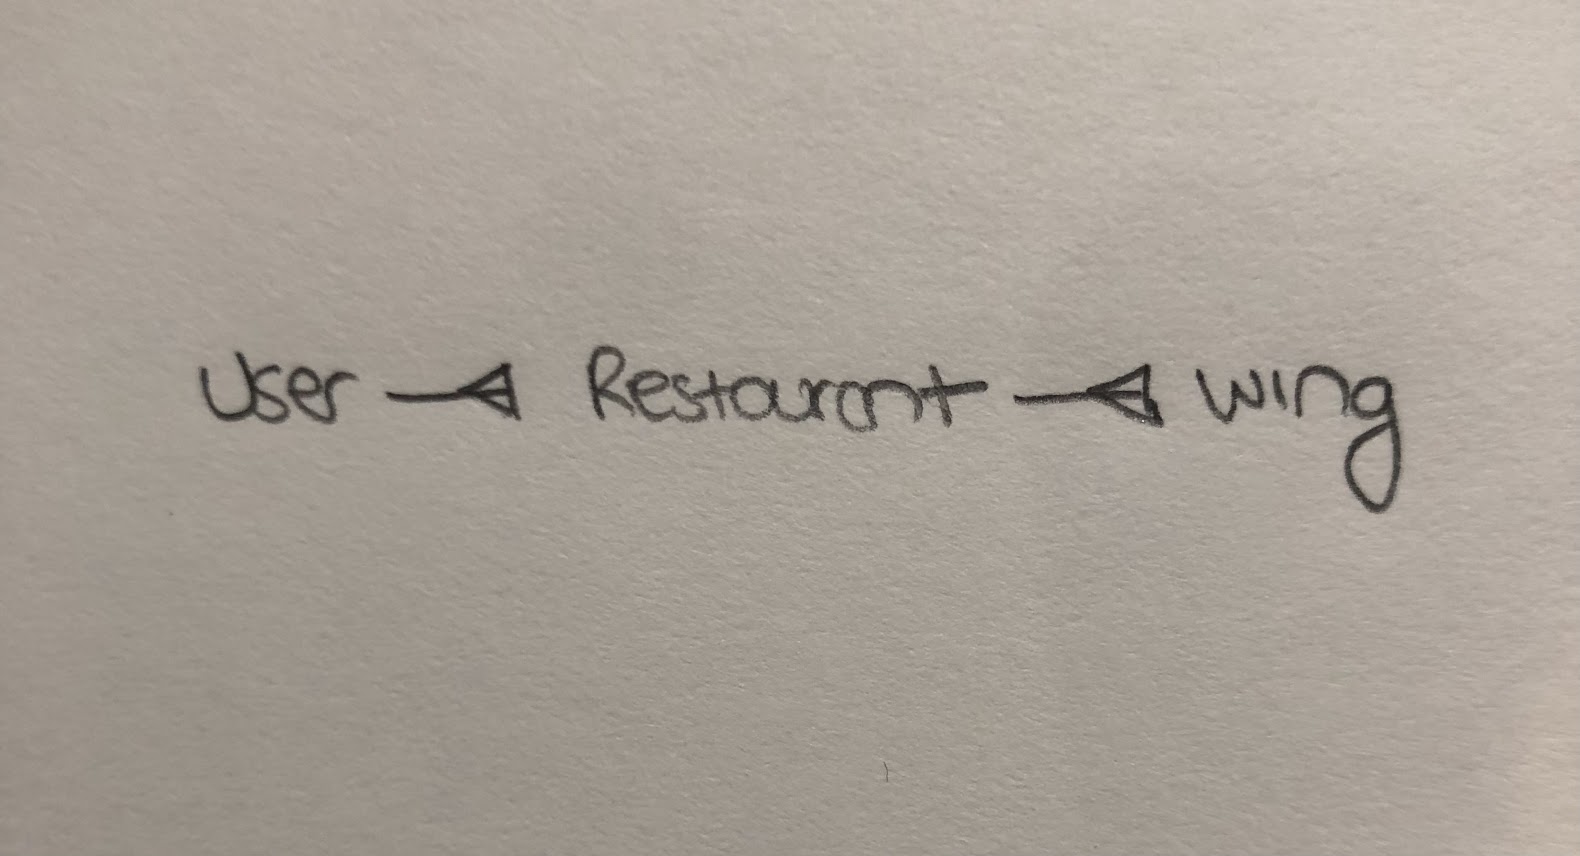 User Restaurant Wing